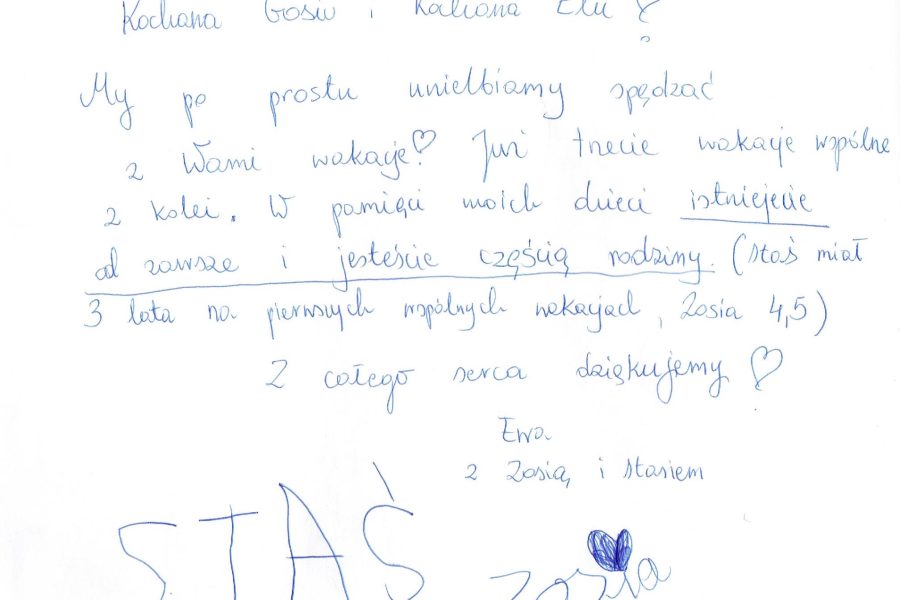 Kochana Gosiu i Kochana Elu!
My po prostu uwielbiamy spędzać
z Wami wakacje! Już trzecie wakacje wspólne
z kolei. W pamięci moich dzieci istniejecie
od zawsze i jesteście częścią rodziny. (Staś miał
3 lata na pierwszych wspólnych wakacjach, Zosia 4,5)
Z całego serca dziękujemy ♡
Ewa
z Zosią i Stasiem
STAŚ Zosia